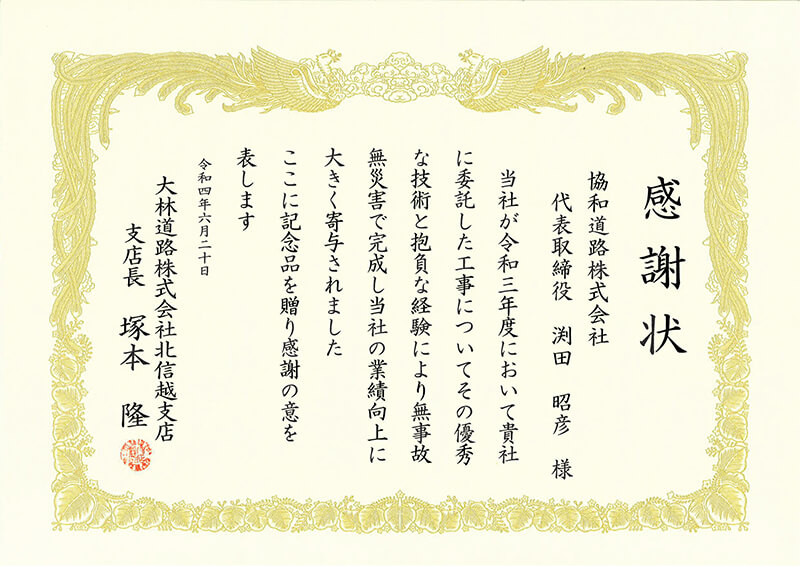 感謝状
協和道路株式会社
代表取締役 渕田 昭彦 様
当社が令和三年度において貴社
に委託した工事についてその優秀
な技術と抱負な経験により無事故
無災害で完成し当社の業績向上に
大きく寄与されました
ここに記念品を贈り感謝の意を
表します
令和四年六月二十日
大林道路株式会社北信越支店
支店長 塚本 隆